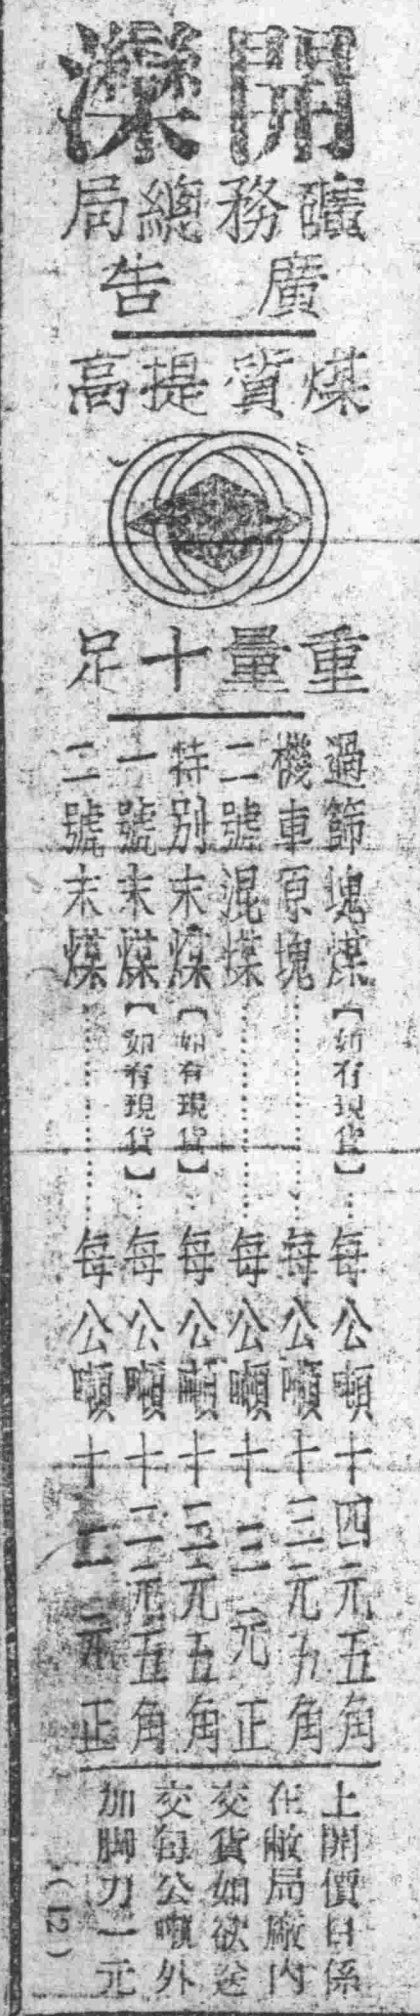 開灤
礦務總局
廣告
煤質提高
重量十足
過篩塊煤【如有現貨】…每公噸十四元五角
機車原塊…………每公噸十三元五角
二號混煤…………每公噸十三元正
特別末煤【如有現貨】…每公噸十三元五角
一號末煤【如有現貨】…每公噸十二元五角
二號末煤…………每公噸十二元正
上開價目係
在敝局廠內
交貨如欲送
交每公噸外
加脚力一元
(12)